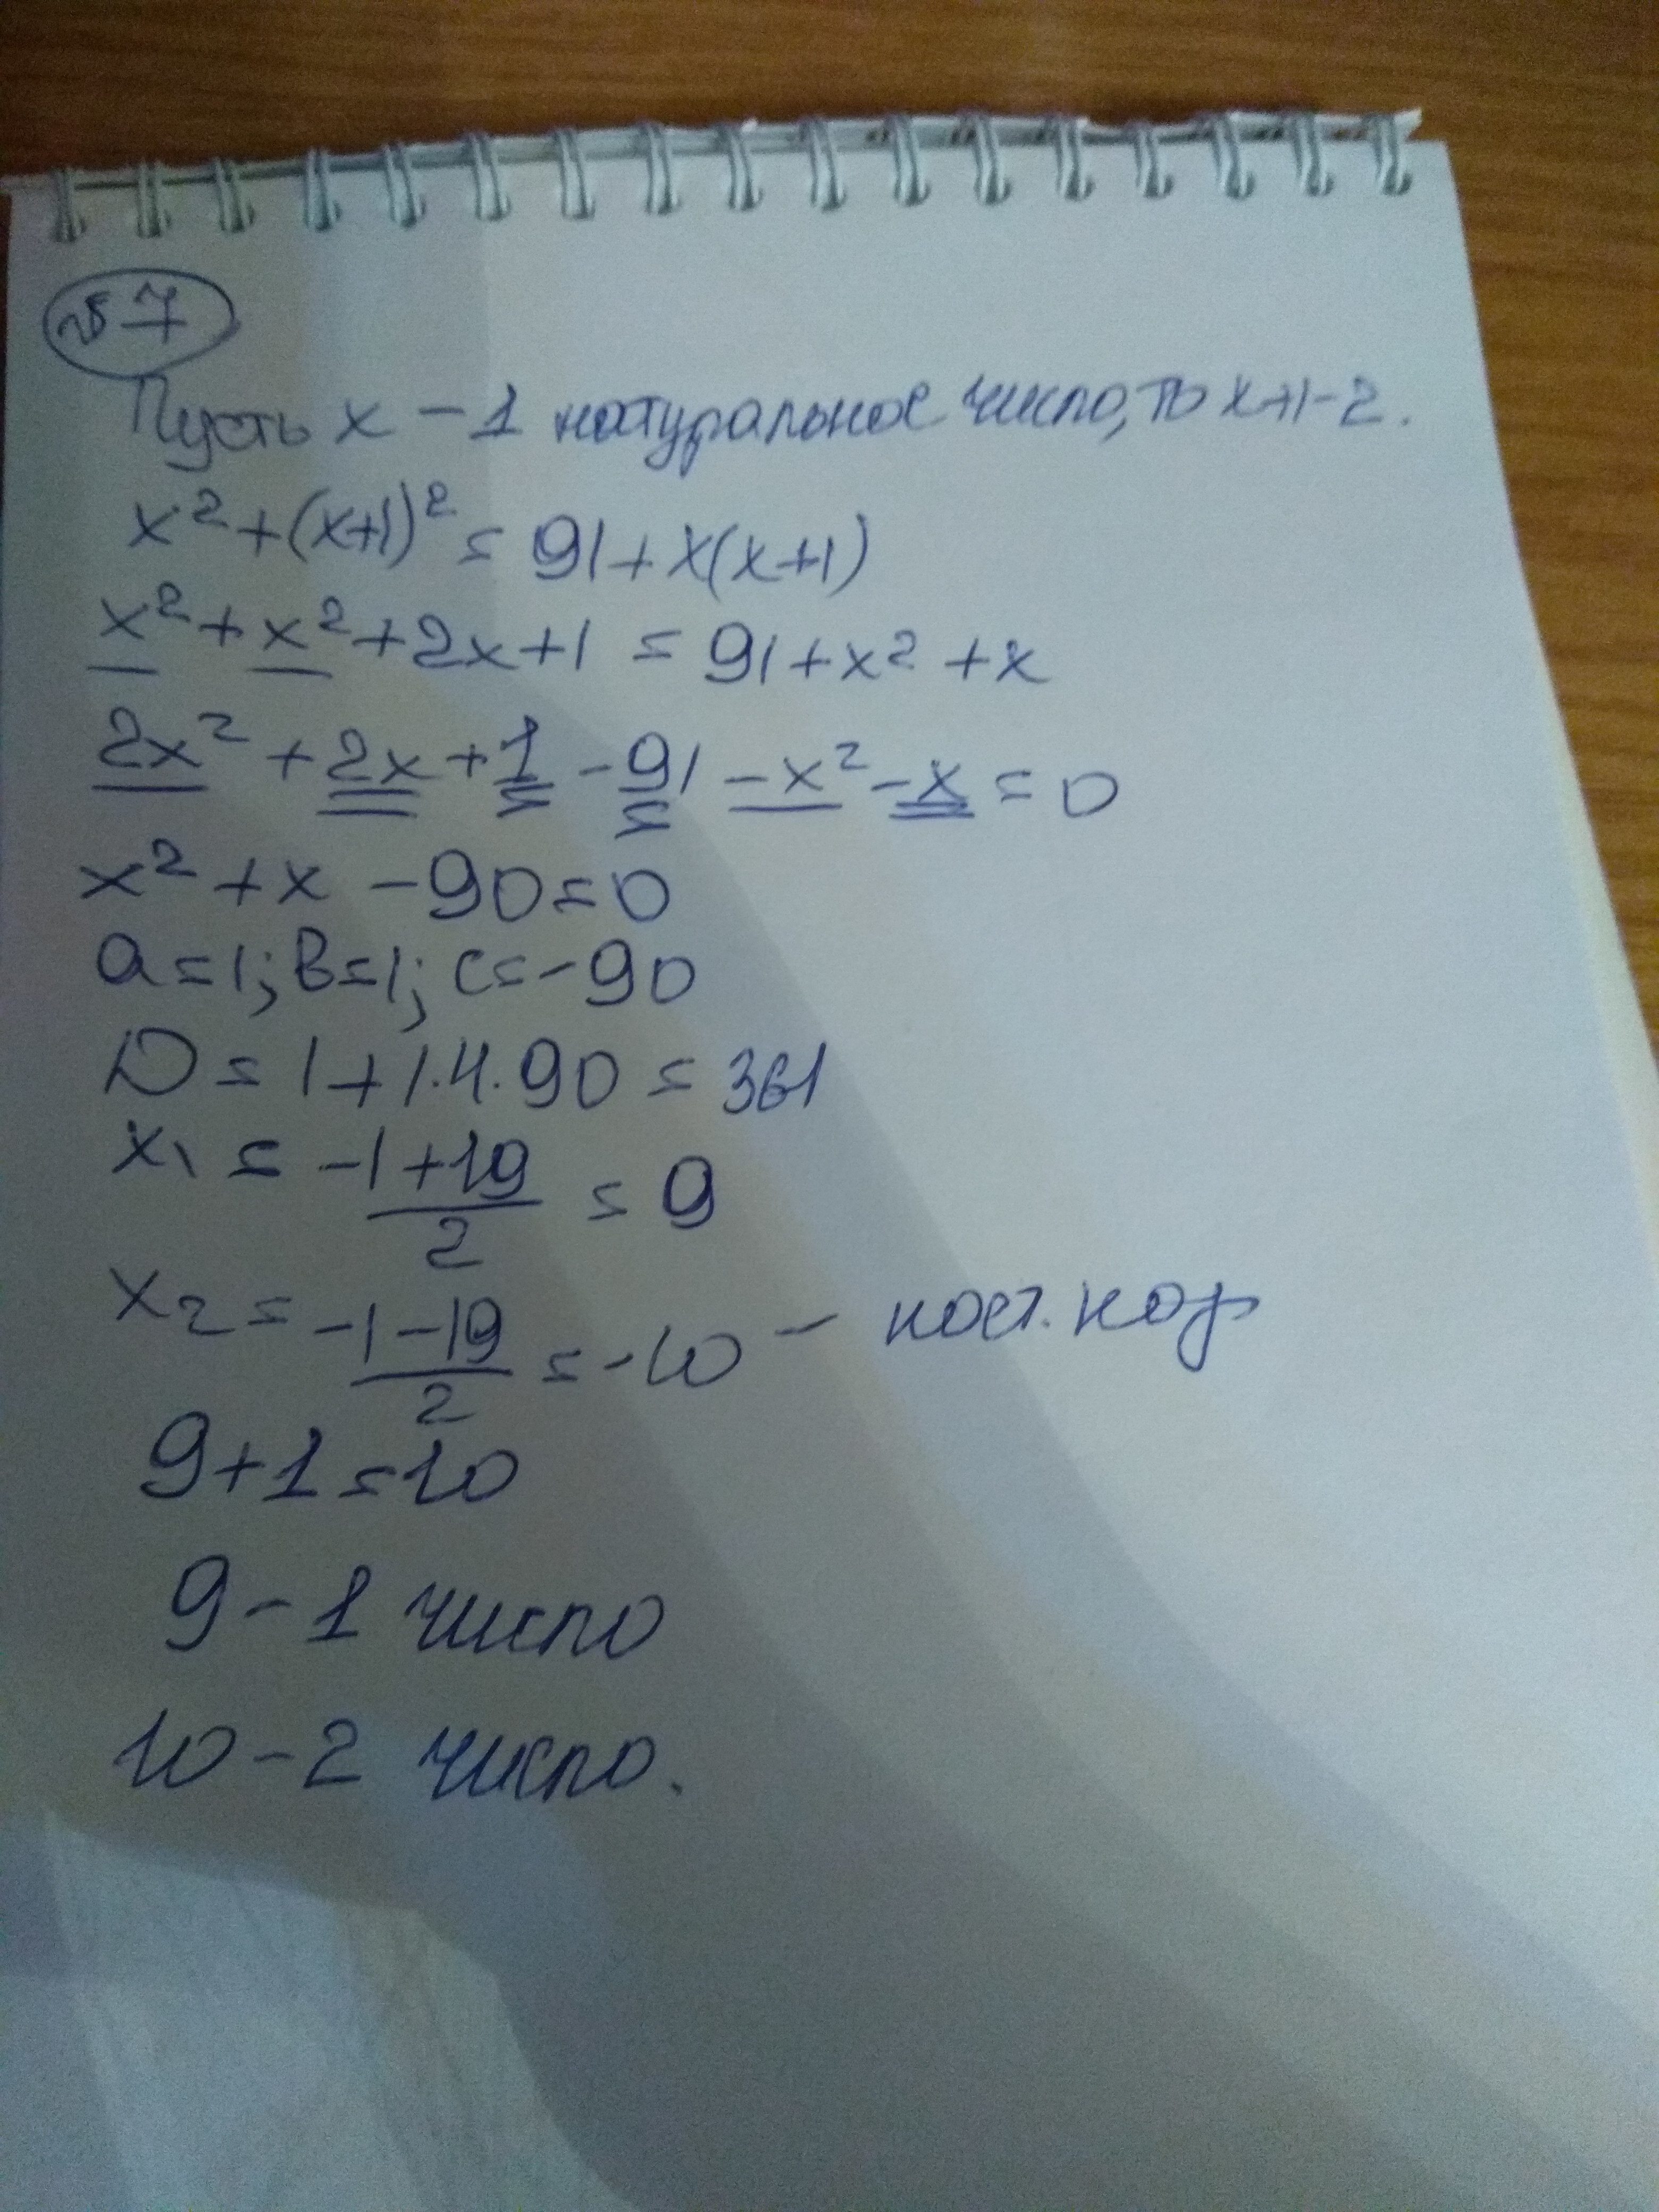 №7
Пусть x - 1 натуральное число, то x+1 - 2.
x² + (x+1)² = 91 + x(x+1)
x² + x² + 2x + 1 = 91 + x² + x
2x² + 2x + 1 - 91 - x² - x = 0
x² + x - 90 = 0
a = 1; b = 1; c = -90
D = 1 + 1·4·90 = 361
x₁ = (-1+19)/2 = 9
x₂ = (-1-19)/2 = -10 -
9 + 1 = 10
9 - 1 число
10 - 2 число.